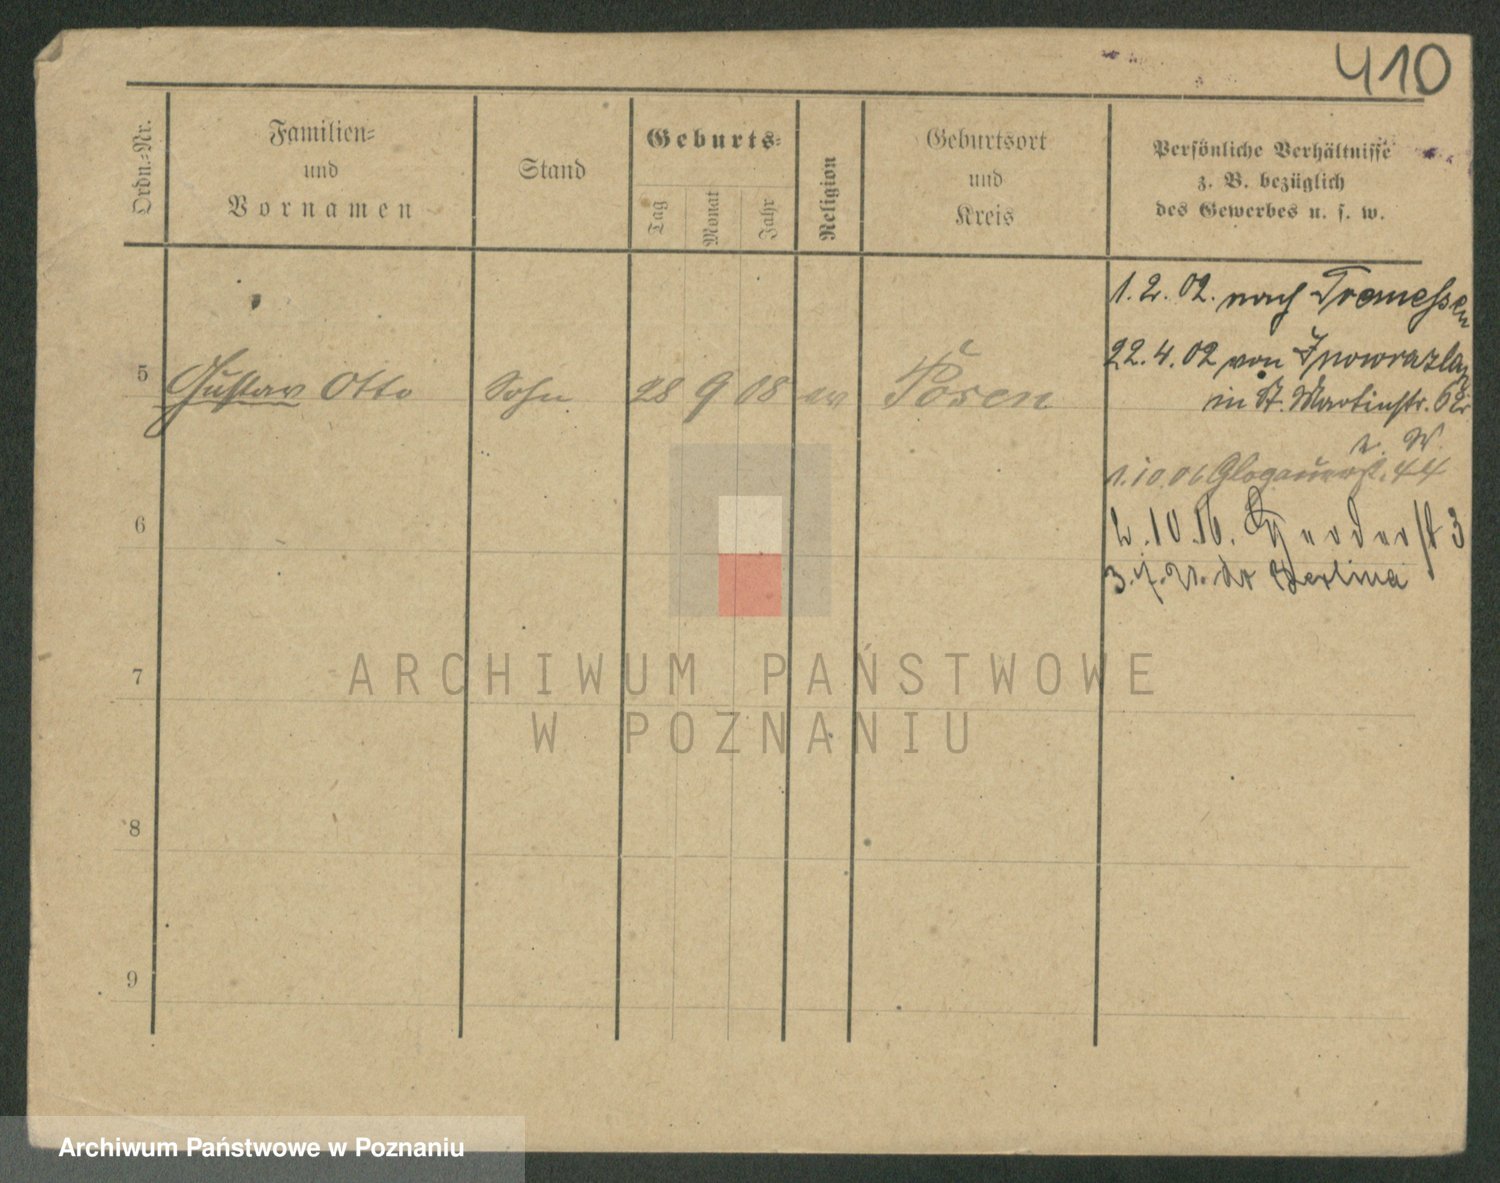 410
Ordn.-Nr.
Familien-
und
Vornamen
Stand
Geburts-
Tag
Monat
Jahr
Religion
Geburtsort
und
Kreis
Persönliche Verhältnisse
z. B. bezüglich
des Gewerbes u. s. w.
1.2.02. nach Tremessen
22.4.02 von Inowrazlaw
in St. Martinstr. 62
5 Gustav Otto Sohn 28 9 08 ev Posen
1.10.06 Glogauerst. 44
6
3.7.21. do Berlina
7
ARCHIWUM PAŃSTWOWE
W POZNANIU
8
9
Archiwum Państwowe w Poznaniu